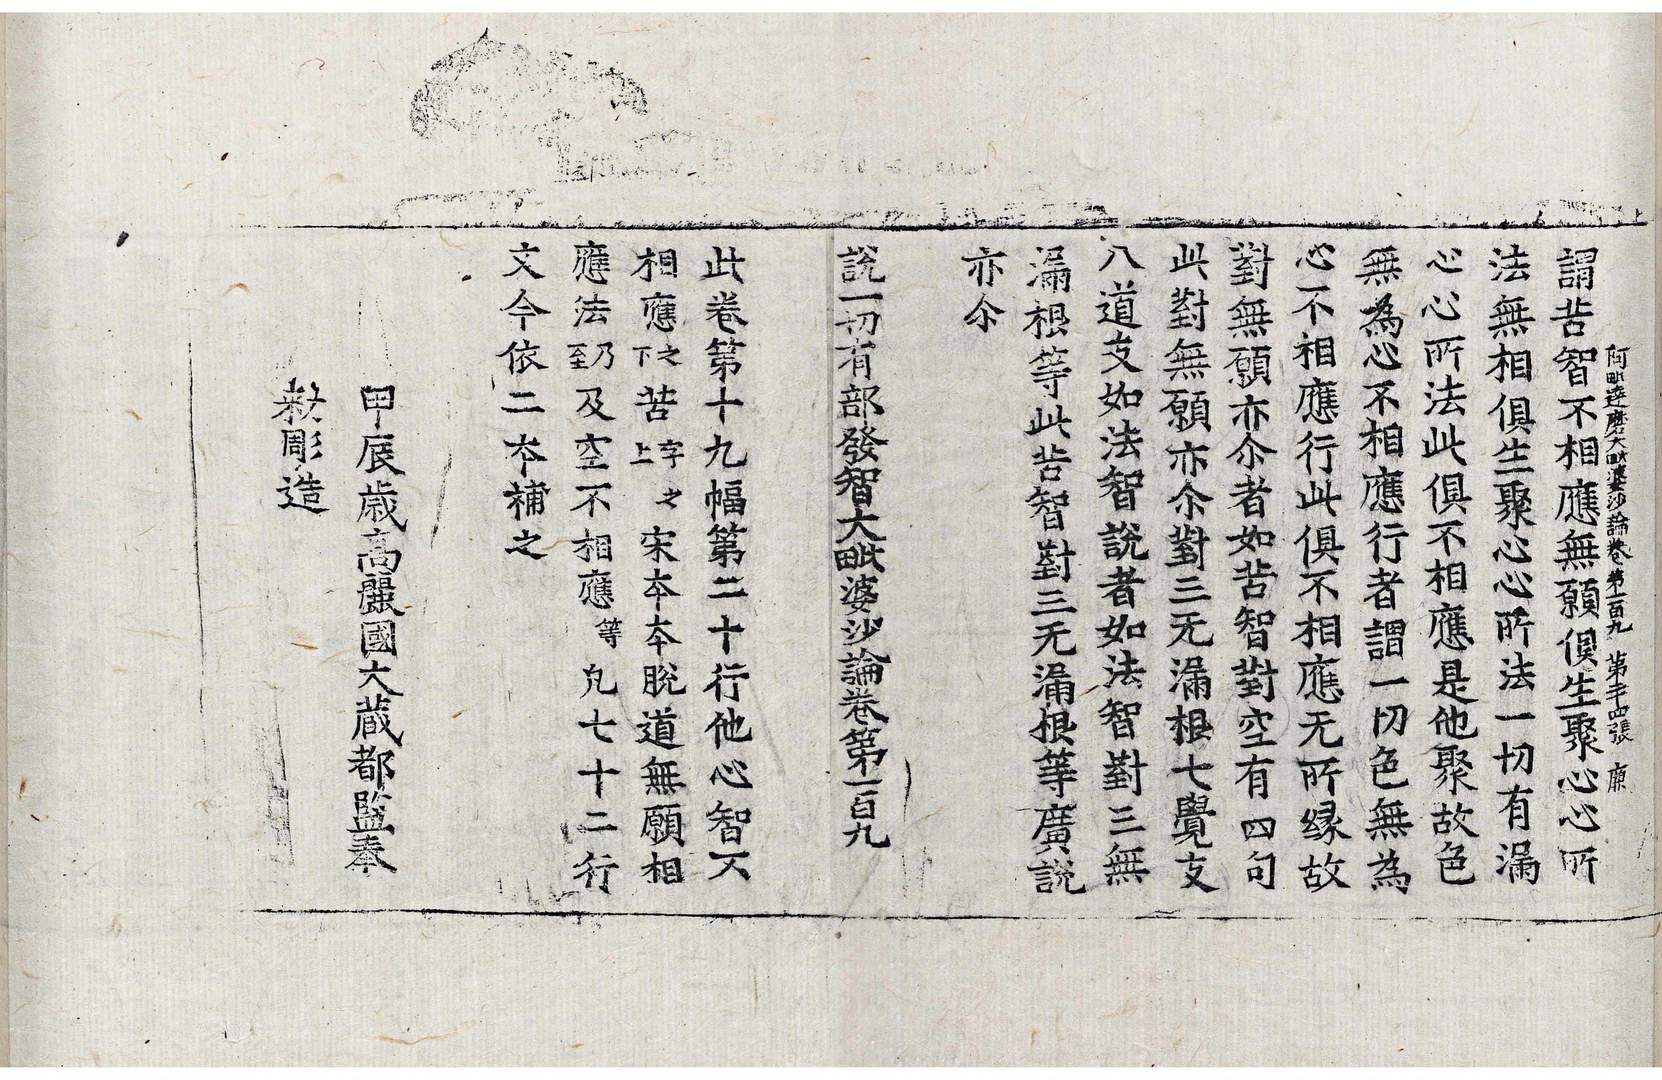 阿毗達磨大毗婆沙論卷第一百九 第二十四張 廉
謂苦智不相應無願俱生聚心心所
法無相俱生聚心心所法一切有漏
心心所法此俱不相應是他聚故色
無為心不相應行者謂一切色無為
心不相應行此俱不相應无所緣故
對無願亦尒者如苦智對空有四句
此對無願亦尒對三无漏根七覺支
八道支如法智說者如法智對三無
漏根等此苦智對三无漏根等廣說
亦尒
說一切有部發智大毗婆沙論卷第一百九
此卷第十九幅第二十行他心智不
相應之下苦字之上宋夲夲脫道無願相
應法乃至及空不相應等凡七十二行
文今依二夲補之
甲辰歲高麗國大藏都監奉
勑彫造